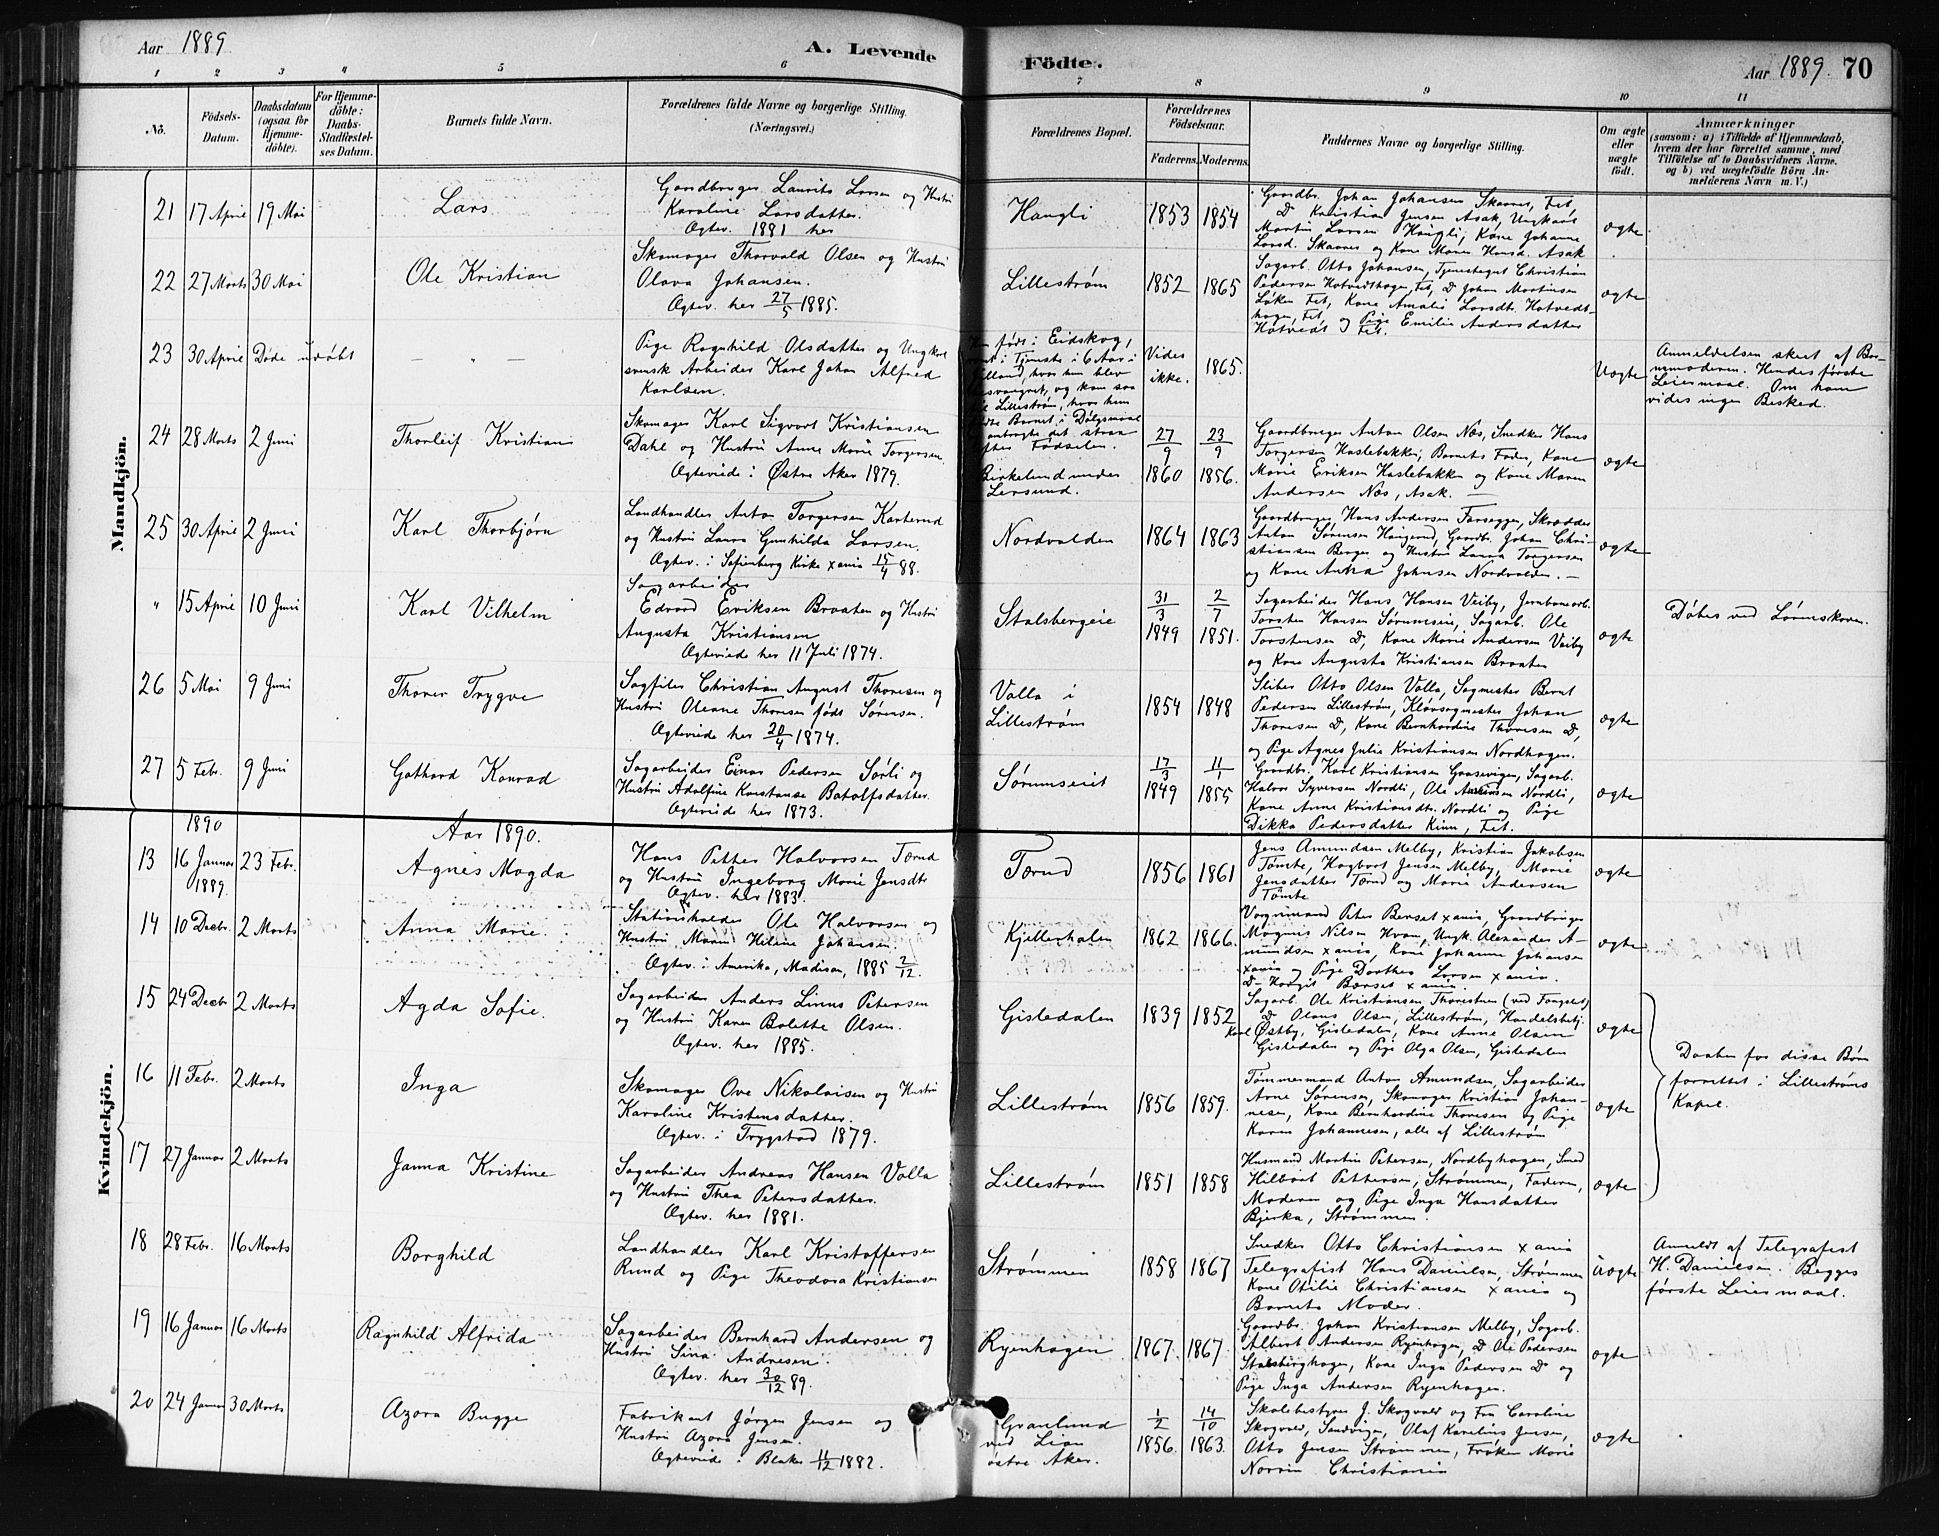 Aar 1889
A. Levende
Födte.
Aar 1889. 70
1 2 3 4 5 6 7 8 9 10 11
No.
Födsels-
Datum.
Daabsdatum
(ogsaa for
Hjemme-
döbte).
For Hjemme-
döbte:
Daabs-
Stadfæstel-
ses Datum.
Barnets fulde Navn.
Forældrenes fulde Navne og borgerlige Stilling.
(Næringsvei.)
Forældrenes Bopæl.
Forældrenes
Födselsaar.
Faderens. Moderens.
Faddernes Navne og borgerlige Stilling.
Om ægte
eller
uægte
født.
Anmærkninger
(saasom: a) i Tilfælde af Hjemmedaab,
hvem der har forrettet samme, med
Tilföielse af to Daabsvidners Navne,
og b) ved uægtefødte Börn An-
melderens Navn m. V.)
Mandkjön.
21 17 April 19 Mai
Lars
Gaardbruger Laurits Larsen og Hustru
Karoline Larsdatter.
Ægtev. 1881 her
Haugli
1853 1854
Gaardbr. Johan Johansen Skaarer, Fet,
D Kristian Jensen Asak, Ungkarl
Martin Larsen Haugli, Kone Johanne
Larsd. Skaarer og Kone Maren Hansd. Asak
ægte
22 27 Marts 30 Mai
Ole Kristian
Skomager Thorvald Olsen og Hustru
Olava Johansen.
Ægtev. her 27/5 1885.
Lillestrøm
1852 1865
Sagarb. Otto Johansen, Tjenestegut Christian
Pedersen Hatvedthagen, Fet, D Johan Martinsen
Løken Fet, Kone Amalie Larsdt. Hatvedt-
hagen, Fet, og Pige Emilie Andersdatter
Hatvedt Fet.
ægte
23 30 April Døde udøbt
— " —
Pige Ragnhild Olsdatter og Ungkarl
svensk Arbeider Karl Johan Alfred
Karlsen.
født i Eidskog,
i Tjeneste i 6 Aar i
hvor hun blev
og kom saa
Lillestrøm, hvor hun
Barnet i Dølgsmaal
det strax
efter Fødselen.
Vides
ikke.
1865.
Uægte
Anmeldelsen skeet af Bar-
nemoderen. Hendes første
Leiermaal. Om ham
vides ingen Besked.
24 28 Marts 2 Juni
Thorleif Kristian
Skomager Karl Sigvart Kristiansen
Dahl og Hustru Anne Marie Torgersen.
Ægteviede i Østre Aker 1879.
Birkelund under
Lersund.
27/9 1860 23/9 1856.
Gaardbruger Anton Olsen Næs, Snedker Hans
Torgersen Haslebakken, Barnets Fader, Kone
Marie Eriksen Haslebakken og Kone Maren
Andersen Næs, Asak. —
ægte
25 30 April 2 Juni
Karl Thorbjørn
Landhandler Anton Torgersen Karterud
og Hustru Laura Gunhilda Larsen.
Ægtev. i Sofienberg Kirke Xania 15/4 88.
Nordvolden
1864 1863
Gaardbruger Hans Andersen Farsegger, Skrædder
Anton Sørensen Haugerud, Gaardb. Johan Chri-
stiansen Berger og Hustru Laura Torgersen
og Kone Anna Johnsen Nordvolden. —
ægte
" 15 April 10 Juni
Karl Vilhelm
Sagarbeider
Edvard Eriksen Braaten og Hustru
Augusta Kristiansen
Ægteviede her 11 Juli 1874.
Stalsbergeie
31/3 1849 2/7 1851.
Sagarbeider Hans Hansen Veiby, Jernbanearb.
Torsten Hansen Sørumseie, Sagarb. Ole
Torstensen D, Kone Marie Andersen Veiby
og Kone Augusta Kristiansen Braaten
ægte
Døbes ved Lørenskoven.
26 5 Mai 9 Juni
Thorer Trygve
Sagfiler Christian August Thoresen og
Hustru Oleane Thoresen født Sørensen.
Ægteviede her 20/4 1874.
Volla i
Lillestrøm
1854 1848
Sliber Otto Olsen Volla, Sagmester Bernt
Pedersen Lillestrøm, Kløvsagmester Johan
Thoresen D, Kone Bernhardine Thoresen D,
og Pige Agnes Julie Kristiansen Nordhagen.
ægte
27 5 Febr. 9 Juni
Gothard Konrad
Sagarbeider Einar Pedersen Sørli og
Hustru Adolfine Konstanse Botolfsdatter.
Ægteviede her 1873.
Sørumseiet
17/3 1849 11/1 1855
Gaardbr. Karl Kristiansen Gaasevigen, Sagarb.
Halvor Syversen Nordli, Ole Andersen Nordli,
Kone Anne Kristiansdt. Nordli og Pige
Dikka Pedersdatter Kinn, Fet.
ægte
Kvindekjön.
1890
Aar 1890.
13 16 Januar 23 Febr.
Agnes Magda
Hans Petter Halvorsen Tærud
og Hustru Ingeborg Marie Jensdt.
Ægtev. her 1883.
Tærud
1856 1861
Jens Amundsen Melby, Kristian Jakobsen
Tomte, Hagbart Jensen Melby, Marie
Jensdatter Tærud og Marie Andersen
Tomte
ægte
1889.
14 10 Decbr. 2 Marts
Anna Marie.
Stationsholder Ole Halvorsen og
Hustru Maren Helene Johansen.
Ægtev. i Amerika, Madison, 1885 2/12
Kjellerhalen
1862 1866.
Vognmand Peter Berset Xania, Gaardbruger
Magnus Nilsen Hvam, Ungk. Alexander A-
mundsen Xania, Kone Johanne Johansen
Xania og Pige Dorthea Larsen Xania.
D- Hargit Berset Xania.
ægte
15 24 Decbr 2 Marts
Agda Sofie.
Sagarbeider Anders Linus Petersen
og Hustru Karen Bolette Olsen.
Ægtev. her 1885.
Gisledalen
1839 1852
Sagarb. Ole Kristiansen Thorestuen (ved Fangslet)
D Olaus Olsen, Lillestrøm, Handelsbetj.
Karl Østby, Gisledalen, Kone Anne Olsen
Gisledalen og Pige Olga Olsen, Gisledalen
ægte
Daaben for disse Børn
forrettet i Lillestrøms
Kapel.
16 11 Febr. 2 Marts
Inga
Skomager Ove Nikolaisen og Hustru
Karoline Kristensdatter.
Ægtev. i Trygstad 1879.
Lillestrøm
1856 1859.
Tømmermand Anton Amundsen, Sagarbeider
Arne Sørensen, Skomager Kristian Johan-
nesen, Kone Bernhardine Thoresen og Pige
Karen Johannesen, alle af Lillestrøm
ægte
17 27 Januar 2 Marts
Janna Kristine
Sagarbeider Andreas Hansen Volla
og Hustru Thea Petersdatter.
Ægtev. her 1881.
Lillestrøm
1851 1858
Husmand Martin Petersen, Nordbyhagen, Smed
Hilbert Pettersen, Strømmen, Faderen,
Moderen og Pige Inga Hansdatter
Bjerka, Strømmen.
ægte
18 28 Febr. 16 Marts
Borghild
Landhandler Karl Kristoffersen
Rund og Pige Theodora Kristiansen
Strømmen
1858 1867
Snedker Otto Christiansen Xania
Telegrafist Hans Danielsen, Strømmen
Kone Otilie Christiansen Xania og
Barnets Moder.
Uægte
Anmeldt af Telegrafist
H. Danielsen. Begges
første Leiermaal.
19 16 Januar 16 Marts
Ragnhild Alfrida
Sagarbeider Bernhard Andersen og
Hustru Sina Andresen.
Ægtev. her 30/12 89.
Ryenhagen
1867. 1867
Gaardbr. Johan Kristiansen Melby, Sagarb.
Albert Andersen Ryenhagen, D Ole Pedersen
Stalsberghagen, Kone Inga Pedersen D og
Pige Inga Andersen Ryenhagen.
ægte
20 24 Januar 30 Marts
Azora Bugge
Fabrikant Jørgen Jensen og
Hustru Azora Jensen.
Ægteviede i Blaker 11/12 1882.
Granlund
ved Lian
østre Aker.
1/2 1856. 14/10 1863.
Skolebestyrer J. Skogvold og Fru Caroline
Skogvold, Sandvigen, Olaf Karelius Jensen,
Otto Jensen Strømmen, Frøken Marie
Norrin Christiania
ægte